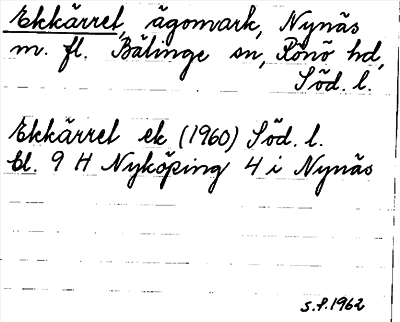 Ekkärret, ägomark, Nynäs
m. fl. Bälinge sn, Rönö hd,
Söd. l.
Ekkärret ek (1960) Söd. l.
bl. 9 H Nyköping 4 i Nynäs
S.P. 1962